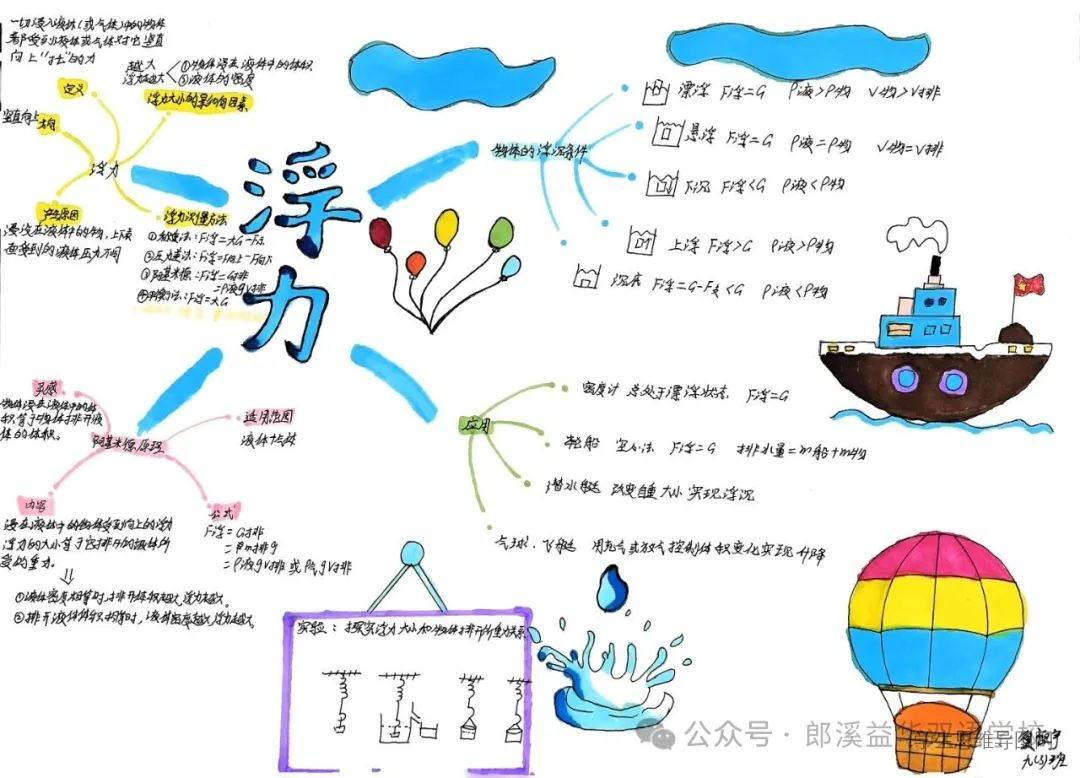 一切浸入液体(或气体)中的物体
都受到液体或气体对它竖直
向上“托”的力
越大
浮力越大
①物体浸在液体中的体积
②液体的密度
定义
浮力大小的影响因素
竖直向上
方向
浮力
产生原因
浸没在液体中的物,上下表
面受到的液体压力不同
浮力测量方法
①称重法:F浮=G-F示
②压力差法:F浮=F向上-F向下
③阿基米德:F浮=G排
=ρ液gV排
④平衡法:F浮=G
浮力
物体的浮沉条件
漂浮 F浮=G ρ液>ρ物 V物>V排
悬浮 F浮=G ρ液=ρ物 V物=V排
下沉 F浮<G ρ液<ρ物
上浮 F浮>G ρ液>ρ物
沉底 F浮=G-F支<G ρ液<ρ物
灵感
物体浸在液体中的体
积等于物体排开液
体的体积。
阿基米德原理
适用范围
液体气体
内容
浸在液体中的物体受到向上的浮力
浮力的大小等于它排开的液体所
受的重力。
①液体密度相等时,排开体积越大,浮力越大。
②排开液体体积相等时,液体密度越大浮力越大。
公式
F浮=G排
=m排g
=ρ液gV排 或 ρ气gV排
应用
密度计 总处于漂浮状态, F浮=G
轮船 空心法 F浮=G 排水量=m船+m物
潜水艇 改变自重大小实现浮沉
气球、飞艇 用充气或放气控制体积变化实现升降
实验:探究浮力大小和物体排开所重力关系
公众号·郎溪益华双语学校
九(3)班